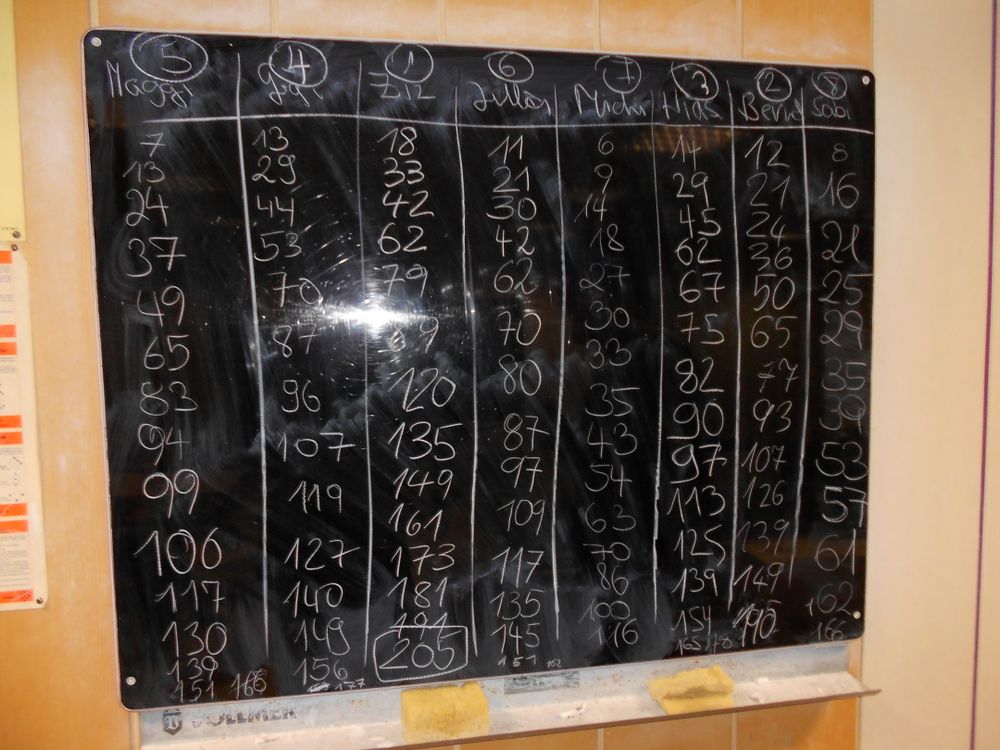 5 4 1 6 7 3 2 8
Maggi Ziz Michi Hias Bernd Sabi
7 13 18 11 6 14 12 8
13 29 33 21 9 29 21 16
24 44 42 30 14 45 24 21
37 53 62 42 18 62 36 25
49 70 79 62 27 67 50 29
65 87 70 30 75 65 35
83 96 120 80 33 82 77 39
94 107 135 87 35 90 93 53
99 119 149 97 43 97 107 57
106 127 161 109 54 113 126 61
117 140 173 117 63 125 139 162
130 149 181 135 70 139 149 166
139 156 191 145 86 154 190
151 166 177 205 151 162 100 165 178
116
VOLLMER